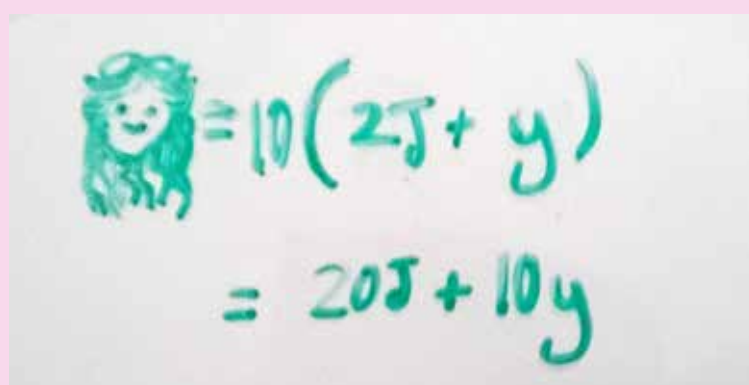 = 10(2J + y)
= 20J + 10y